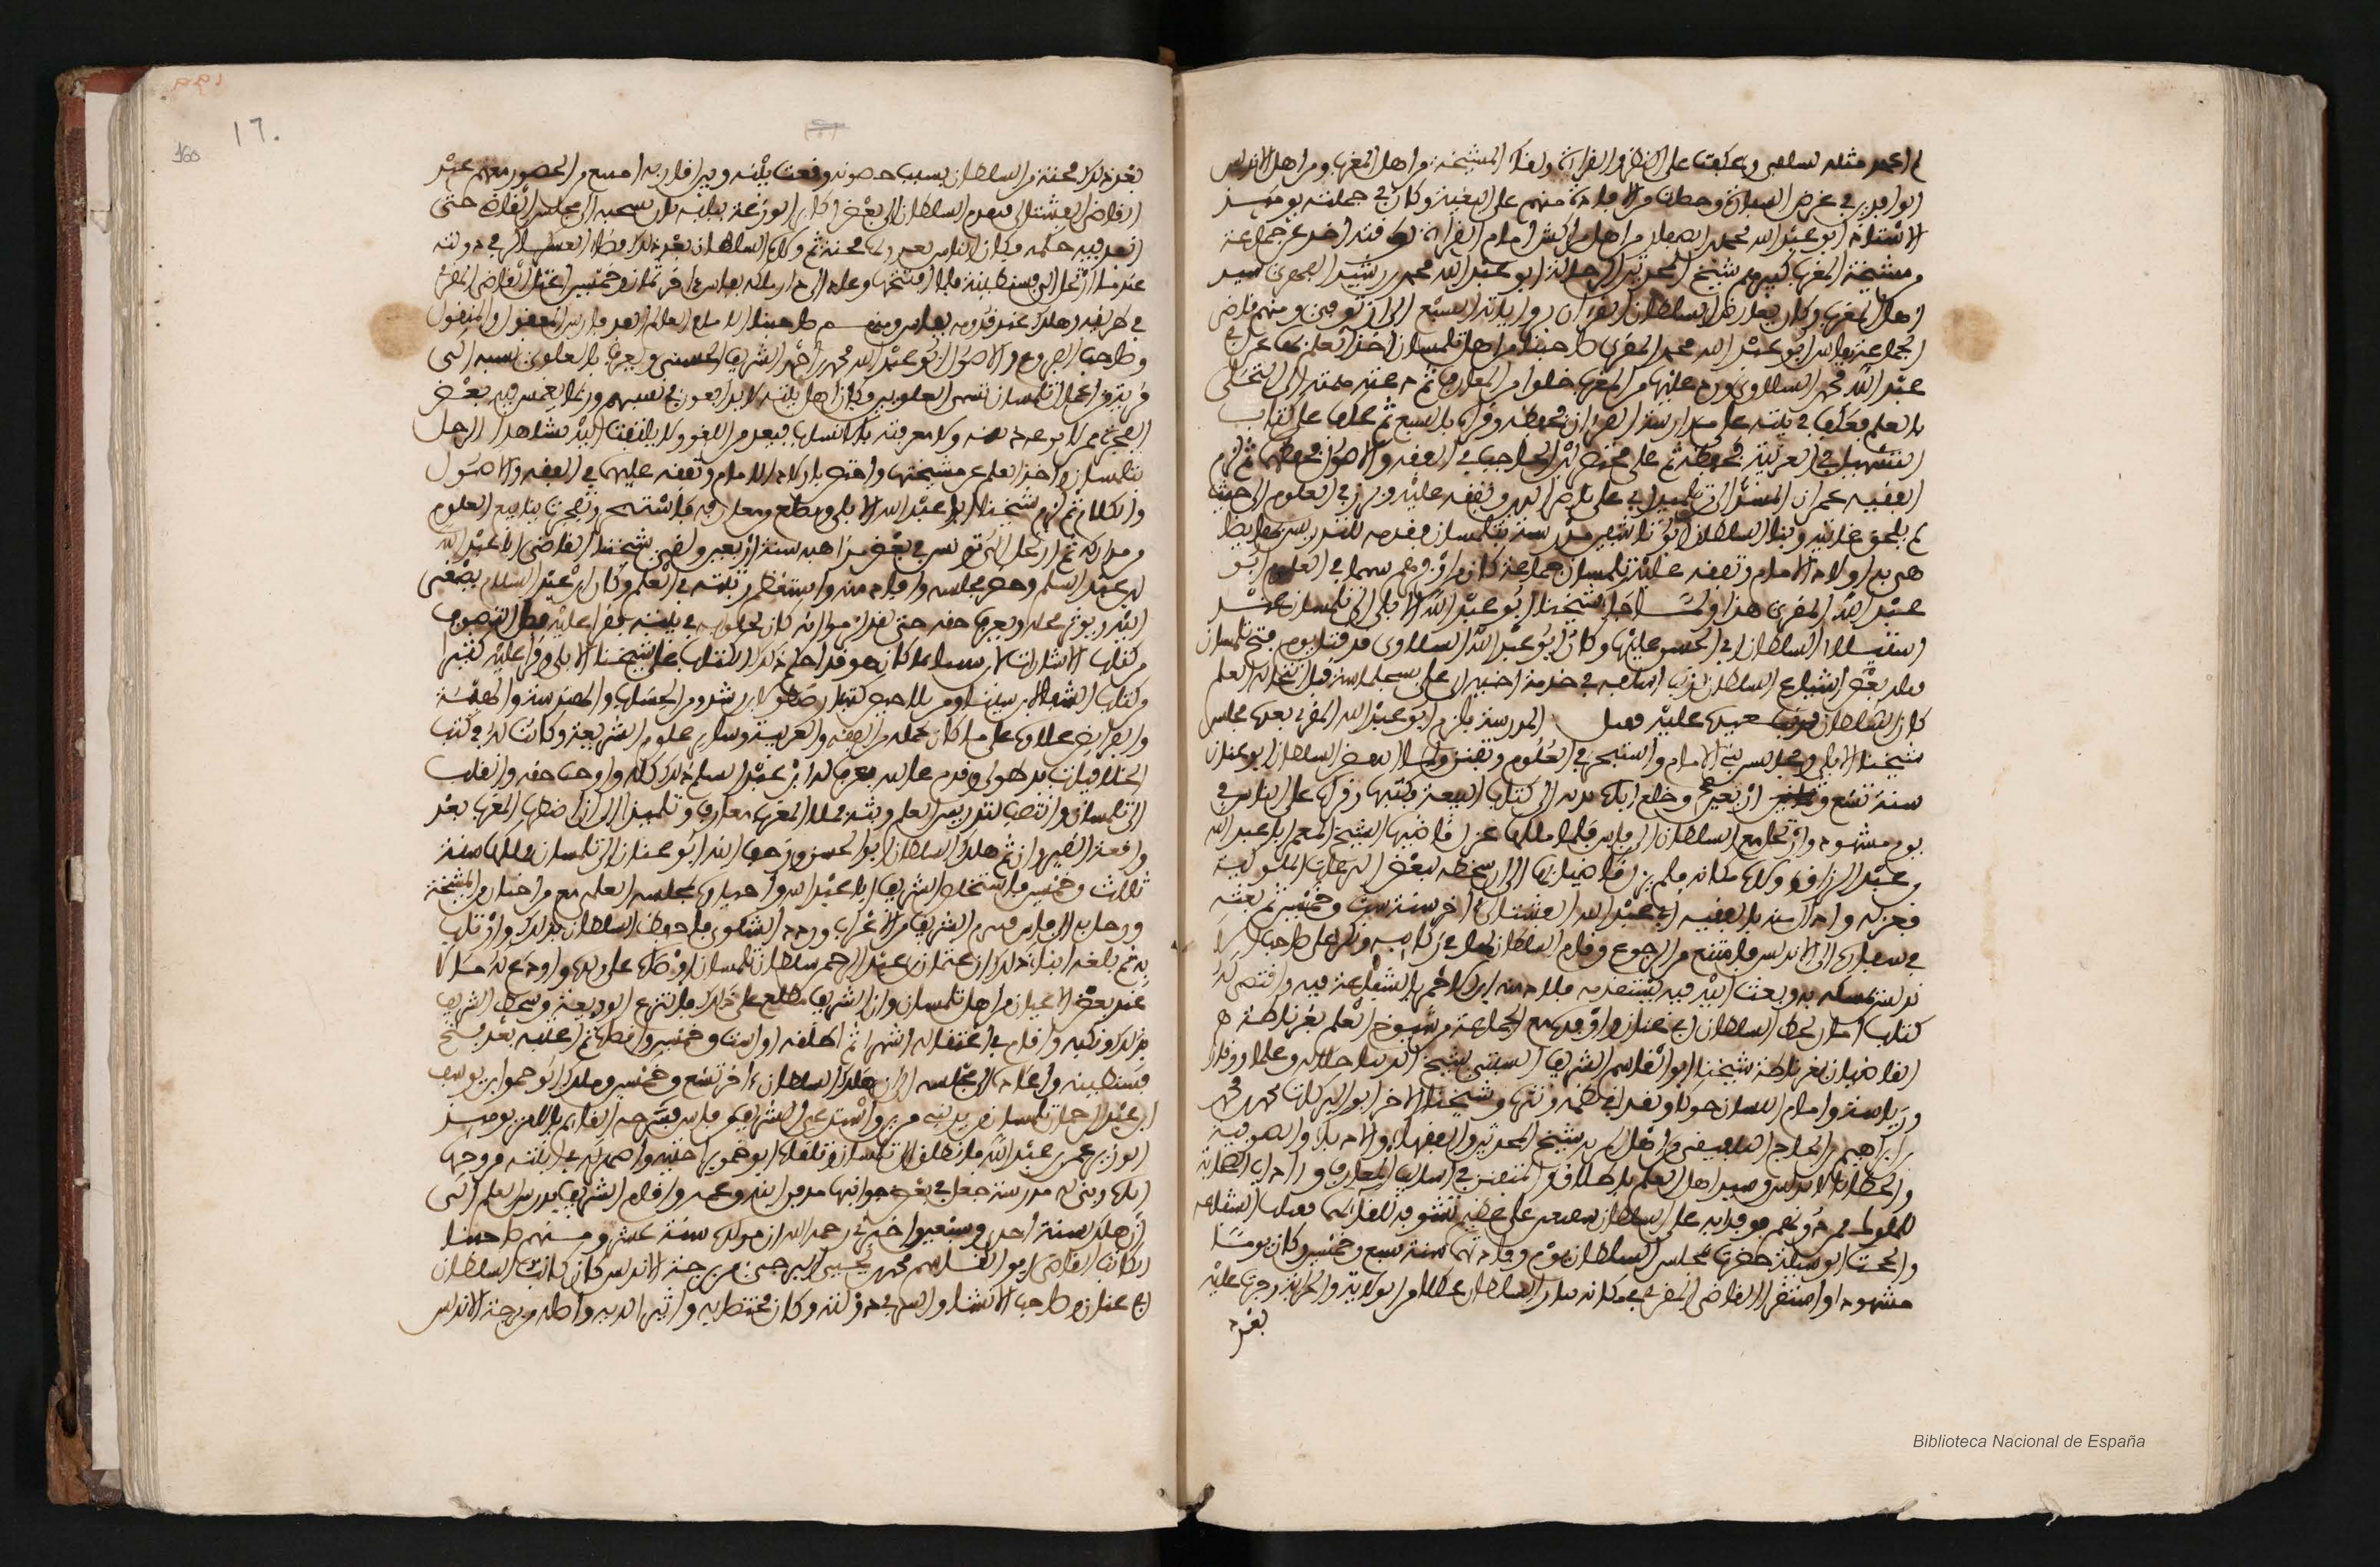 لم اعهد مثله لسلفي وعكفت على النظر والقراءة ولقاء المشيخة من اهل المغرب ومن اهل الاندلس
الوافدين في غرض السفارة وحصلت من الافادة منهم على البغية وكان في جملته يومئذ
الاستاذ ابو عبد الله محمد بن الصفار من اهل مراكش امام القراءات لوقته اخذ عن جماعة
من مشيخة المغرب كبيرهم شيخ المحدثين الرحالة ابو عبد الله محمد بن رشيد الفهري سيد
اهل المغرب وكان يعارض السلطان القرءان برواياته السبع الى ان توفي ومنهم قاضي
الجماعة بفاس ابو عبد الله محمد المقري صاحبنا من اهل تلمسان اخذ العلم بها عن ابي
عبد الله محمد السلاوي ورد عليها من المغرب خلوا من المعارف ثم دعته همته الى التحلي
بالعلم فعكف في بيته على مدارسة القرءان فحفظه وقراه بالسبع ثم عكف على كتاب
التسهيل في العربية فحفظه ثم على مختصر ابن الحاجب في الفقه والاصول فحفظهما ثم لزم
الفقيه عمران المشذالي من تلاميذ ابي علي ناصر الدين وتفقه عليه وبرز في العلوم الى حيث
لم يلحق غايته وبنا السلطان ابو تاشفين مدرسة بتلمسان فقدمه للتدريس بها يضا
هي به اولاد الامام وتفقه عليه بتلمسان جماعة كان من اوفرهم سهما في العلوم ابو
عبد الله المقري هذا ولما جاء شيخنا ابو عبد الله الابلي الى تلمسان عند
استيلاء السلطان ابي الحسن عليها وكان ابو عبد الله السلاوي قد قتل يوم فتح تلمسان
قتله بعض اشياع السلطان لذنب اسلفه في خدمة اخيه ابي علي بسجلماسة قبل انتحاله العلم
كان السلطان يعتده عليه فقتل المدرسة فلزم ابو عبد الله المقري بعده مجلس
شيخنا الابلي ومجلس بني الامام واستبحر في العلوم وتفنن ولما انتقض السلطان ابو عنان
سنة تسع واربعين وخلع اباه ندبه الى كتاب البيعة فكتبها وقراها على الناس في
يوم مشهود وارتحل مع السلطان الى فاس فلما ملكها عزل قاضيها الشيخ المعمر ابا عبد الله
بن عبد الرزاق وولاه مكانه فلم يزل قاضيا بها الى ان سخطه لبعض النزعات الملوكية
فعزله وادال منه بالفقيه ابي عبد الله الفشتالي اخر سنة ست وخمسين ثم بعثه
في سفارة الى الاندلس فامتنع من الرجوع وقام السلطان لها في ركائبه ونكر على صاحب الا
ندلس تمسكه به وبعث اليه فيه يستقدمه فلاذ منه ابن الاحمر بالشفاعة فيه واقتضى له
كتاب امان بخط السلطان ابي عنان واوفده مع الجماعة من شيوخ العلم بغرناطة و
القاضيان بغرناطة شيخنا ابو القاسم الشريف السبتي شيخ الدنيا جلالة وعلما ووقارا
ورياسة وامام اللسان حوكا ونقدا في نظمه ونثره وشيخنا الاخر ابو البركات محمد بن محمد
بن ابراهيم بن الحاج البلفيقي من اهل المرية شيخ المحدثين والفقهاء والادباء والصوفية
والخطباء بالاندلس وسيد اهل العلم باطلاق والمتفنن في اساليب المعارف واداب الصحابة
للملوك فمن دونهم فوفدوا به على السلطان شفيعين على عظيم تشوقه للقائهما فقبلت الشفاعة
وانجحت الوسيلة حضرت بمجلس السلطان يوم وفادتهما سنة سبع وخمسين وكان يوما
مشهودا واستقر القاضي المقري في مكانه بباب السلطان عطلا من الولاية والجراية وجرت عليه
بعد
بعد ذلك محنة من السلطان بسبب خصومة وقعت بينه وبين اقاربه امتنع من الحضور معهم عند
القاضي الفشتالي فتقدم السلطان الى بعض اكابر الوزعة ببابه بان يسحبه الى مجلس القاضي حتى
انفذ فيه حكمه فكان الناس يعدونها محنة ثم ولاه السلطان بعد ذلك قضاء العساكر في دولته
عندما ارتحل الى قسنطينة فلما افتتحها وعاد الى دار ملكه بفاس اخر ثمان وخمسين اعتل القاضي المقري
في طريقه وهلك عند قدومه بفاس ومنهم صاحبنا الامام العالم الفذ فارس المعقول والمنقول
وصاحب الفروع والاصول ابو عبد الله محمد بن احمد الشريف الحسني ويعرف بالعلوي نسبة الى
قرية من اعمال تلمسان تسمى العلوين وكان اهل بيته لا يدافعون في نسبهم وربما يغمز فيه بعض
الفجرة ممن لا يزعه دينه ولا معرفته بالانساب فيعد من اللغو ولا يلتفت اليه نشا هذا الرجل
بتلمسان واخذ العلم عن مشيختها واختص باولاد الامام وتفقه عليهما في الفقه والاصول
والكلام ثم لزم شيخنا ابا عبد الله الابلي وتضلع من معارفه فاستبحر وتفجرت ينابيع العلوم
من مداركه ثم ارتحل الى تونس في بعض مذاهبه سنة اربعين ولقي شيخنا القاضي ابا عبد الله
بن عبد السلام وحضر مجلسه وافاد منه واستعظم رتبته في العلم وكان ابن عبد السلام يصغي
اليه ويوثر محله ويعرف حقه حتى لقد زعموا انه كان يخلو به في بيته فيقرا عليه فصل التصوف
من كتاب الاشارات لابن سينا بما كان هو قد احكم ذلك الكتاب على شيخنا الابلي وقرا عليه كثيرا
من كتاب الشفاء لابن سينا ومن تلاخيص كتب ارسطو لابن رشد ومن الحساب والهندسة والهيئة
والفرايض علاوة على ما كان يحمله من الفقه والعربية وساير علوم الشريعة وكانت له في كتب
الخلافيات يد طولى وقدم عالية فعرف له ابن عبد السلام ذلك كله واوجب حقه وانقلب
الى تلمسان وانتصب لتدريس العلم وبثه فملا المغرب معارف وتلاميذ الى ان اضطرب المغرب بعد
واقعة القيروان ثم هلك السلطان ابو الحسن وزحف ابنه ابو عنان الى تلمسان فملكها سنة
ثلاث وخمسين فاستخلص الشريف ابا عبد الله واختاره لمجلسه العلمي مع من اختار من المشيخة
ورحل به الى فاس فتبرم الشريف من الاغتراب وردد الشكوى فاحفظ السلطان بذلك وارتاب
به ثم بلغه اثناء ذلك ان عثمان بن عبد الرحمن سلطان تلمسان اوصاه على ولده واودع له مالا
عند بعض الاعيان من اهل تلمسان وان الشريف مطلع على ذلك فانتزع الوديعة وسخط الشريف
بذلك ونكبه واقام في اعتقاله اشهرا ثم اطلقه اول ست وخمسين واقصاه ثم اعتبه بعد فتح
قسنطينة واعاده الى مجلسه الى ان هلك السلطان اخر تسع وخمسين وملك ابو حمو بن يوسف
بن عبد الرحمان تلمسان من يد بني مرين واستدعى الشريف من فاس فسرحه القايم بالامر يومئذ
الوزير عمر بن عبد الله فانطلق الى تلمسان وتلقاه ابو حمو براحتيه واصهر له في ابنته فزوجها
اياه وبنى له مدرسة جعل في بعض جوانبها مدفن ابيه وعمه واقام الشريف يدرس العلم الى
ان هلك سنة احدى وسبعين واخبرني رحمه الله ان مولده سنة عشر ومنهم صاحبنا
الكاتب القاضي ابو القاسم محمد بن يحيى البرجي من برجة الاندلس كان كاتب السلطان
ابي عنان وصاحب الانشاء والسر في دولته وكان مختصا به واثيرا لديه واصله من برجة الاندلس
17.
160
Biblioteca Nacional de España